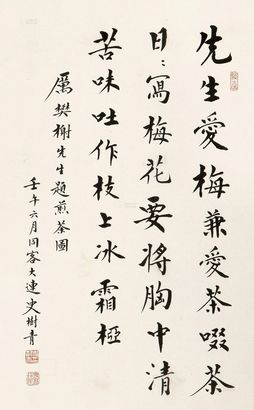 先生愛梅兼愛茶啜茶
日〻寫梅花要將胸中清
苦味吐作枝上冰霜椏
厲樊榭先生題煎茶圖
壬午六月同客大連史樹青